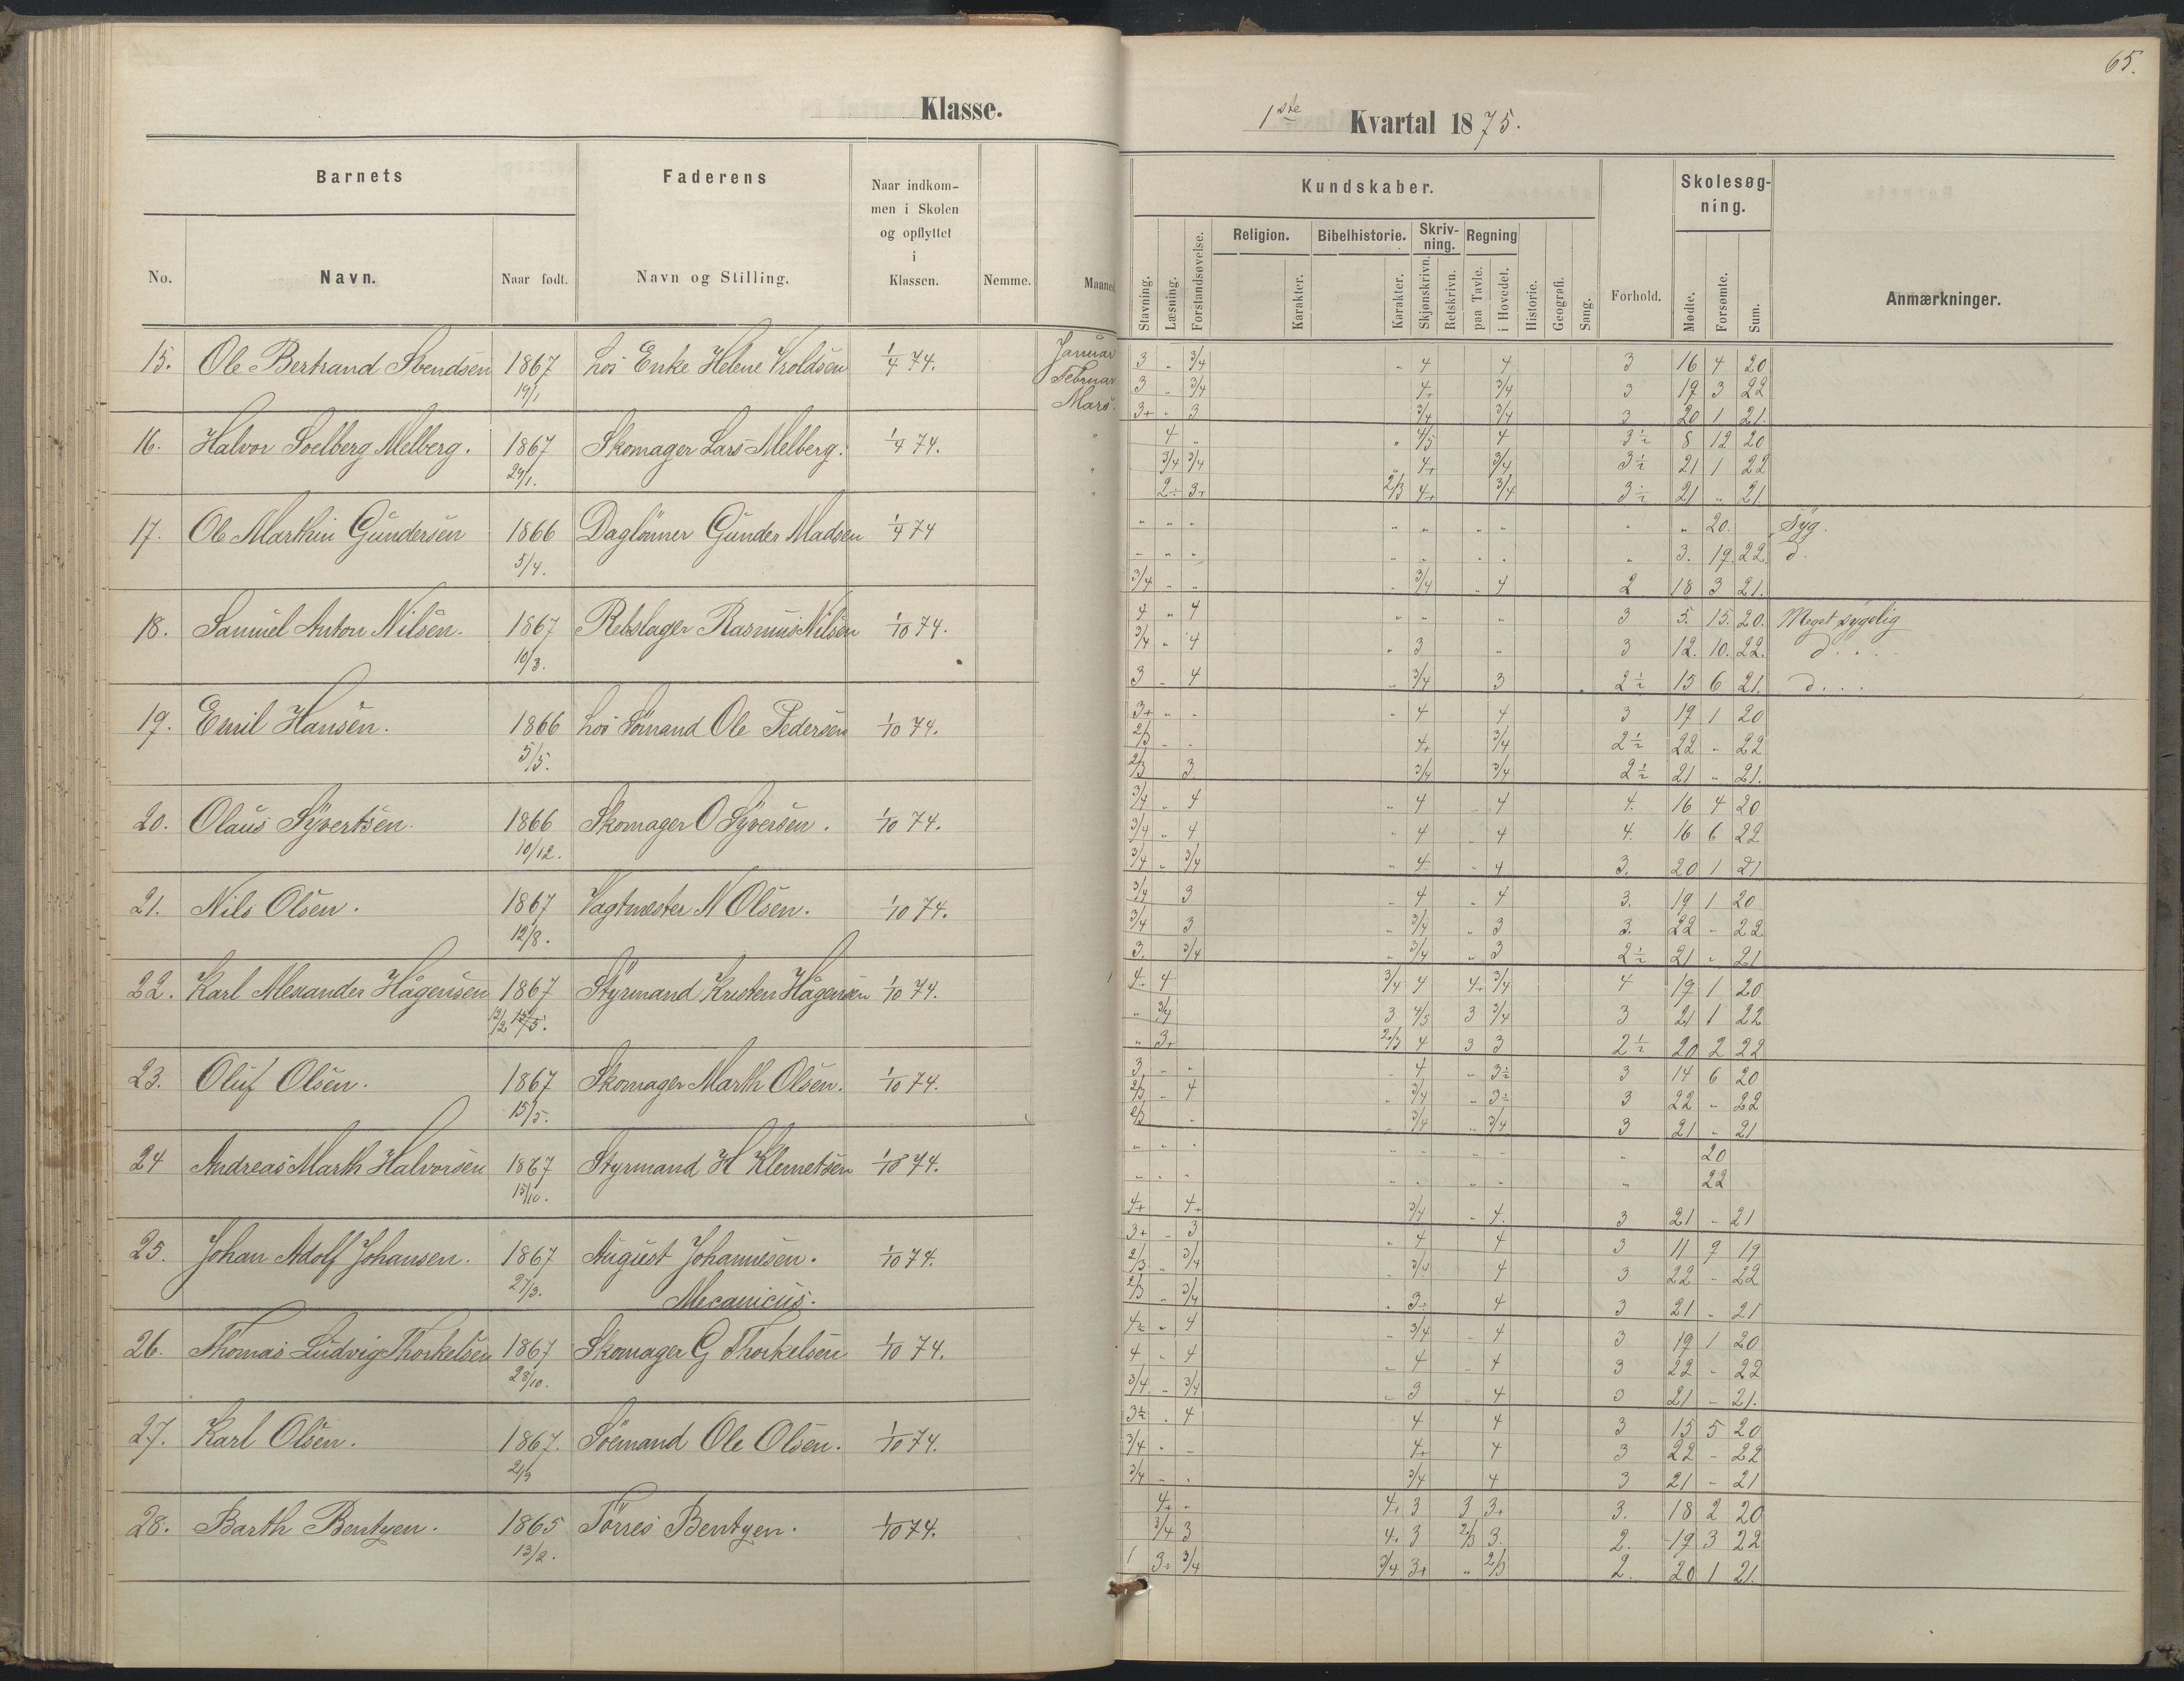 65.
Klasse.
1ste Kvartal 1875.
Barnets
Faderens
Naar indkom-
men i Skolen
og opflyttet
i
Klassen.
No.
Navn.
Naar født.
Navn og Stilling.
Nemme.
Maaned.
Kundskaber.
Skolesøg-
ning.
Stavning.
Læsning.
Forstandsøvelse.
Religion.
Karakter.
Bibelhistorie.
Karakter.
Skriv-
ning.
Skjønskrivn.
Retskrivn.
Regning
paa Tavle.
i Hovedet.
Historie.
Geografi.
Sang.
Forhold.
Mødte.
Forsømte.
Sum.
Anmærkninger.
15. Ole Bertrand Svendsen 1867 hos Enke Helene Troldsen 1/4 74. Januar 3 „ 3/4 „ 4 4 3 16 4 20
19/1 Februar 3 „ 3/4 4+ 3/4 3 19 3 22
Mars. 3+ „ 3 3/4 3/4 3 20 1 21.
16. Halvor Soelberg Melberg. 1867 Skomager Lars Melberg. 1/4 74. „ 4 „ „ 4/5 4 3½ 8 12 20
29/1. „ 3/4 3/4 4+ 3/4 3½ 21 1 22
„ 2÷ 3+ 2/3 4+ 3/4 3½ 21 „ 21
17. Ole Marthin Gundersen 1866 Daglönner Gunder Madsen 1/4 74 „ „ „ „ „ „ „ „ „ 20. Syg.
5/4. „ „ „ „ „ „ „ „ 3. 19. 22. d.
3/4 „ „ „ 3/4 „ 4 2 18 3 21.
18. Samuel Anton Nilsen. 1867 Rebslager Rasmus Nilsen 1/10 74. 4 „ 4 „ „ „ 3 5. 15. 20. Meget sygelig
10/3. 3/4 „ 4 „ 3 „ 3 12. 10. 22. d. . . .
3 „ 4 „ 3/4 3 2½ 15 6 21. d. . .
19. Emil Hansen. 1866 hos Sömand Ole Pedersen 1/10 74. 3+ „ „ „ 4 4 3 19 1 20
5/5. 2/3 „ „ 4+ 3/4 2½ 22 „ 22
2/3 3 3/4 3/4 2½ 21 „ 21.
20. Olaus Syvertsen. 1866 Skomager O Syversen. 1/10 74. 3/4 „ 4 „ 4 „ 4 4. 16 4 20
10/12. 3/4 „ 4 „ 4 „ 4 4. 16 6 22
3/4 „ 3/4 „ 4 „ 4 3. 20 1 21
21. Nils Olsen. 1867 Vagtmester N Olsen. 1/10 74. 3/4 3 „ 4 „ 4 3. 19 1 20
12/8. 3/4 3 „ 3/4 „ 3 3. 22 „ 22
3. 3/4 „ 3/4 „ 3 2½ 21 „ 21
22. Karl Alexander Hågensen 1867 Styrmand Kristen Hågensen 1/10 74. 4÷ 4 3/4 4 4+ 3/4 4 19 1 20
12/2 15/5. „ 3/4 3 4/5 3 3/4 3 21 1 22
„ 3+ 2/3 4 3 3 2½ 20 2 22
23. Oluf Olsen. 1867 Skomager Marth Olsen. 1/10 74. 3 „ „ „ 4 „ 3½ 3 14 6 20
15/5. 2/3 „ 4 „ 3/4 „ 3÷ 3 22 „ 22
2/3 „ „ 3/4 „ 3/4 3 21 „ 21
24 Andreas Marth Halvorsen 1867 Styrmand H Klemetsen 1/10 74. „ „ „ „ „ „ „ „ 20
15/10. „ „ „ „ „ „ „ „ 22
4+ 4+ 3/4 „ 4. 3 21 „ 21
25. Johan Adolf Johansen. 1867 August Johannesen. 1/10 74. 3+ „ 3 „ 4 4 3 11 9 19
27/3. Mecanicus. 2/3 „ 3/4 „ 3/4 4 3 22 „ 22
2/3 „ 3/4 „ 3÷ 4 3 21 „ 21
26. Thomas Ludvig Thorkelsen 1867 Skomager G Thorkelsen 1/10 74. 4½ „ 4 „ 3/4 „ 4 3 19 1 20
28/10. 4 „ 4 „ 4 „ 4 3 22 „ 22
3/4 „ 3/4 „ 3 „ 4 3 21 „ 21.
27. Karl Olsen. 1867. Söemand Ole Olsen. 1/10 74. 3½ „ 4 4 4 3 15 5 20
2/9 3/4 „ „ 4+ 4 3 22 „ 22
3/4 „ „ 3/4 4 3 21 „ 21
28. Barth Bentzen. 1865 Törres Bentzen. 1/10 74. 4+ „ 4+ 3 3 3+ 3. 18 2 20
13/2. 3/4 3 4+ 3 2/3 3. 2. 19 3 22
1 3÷ 3/4 3/4 3+ „ 2/3 2. 20 1 21.